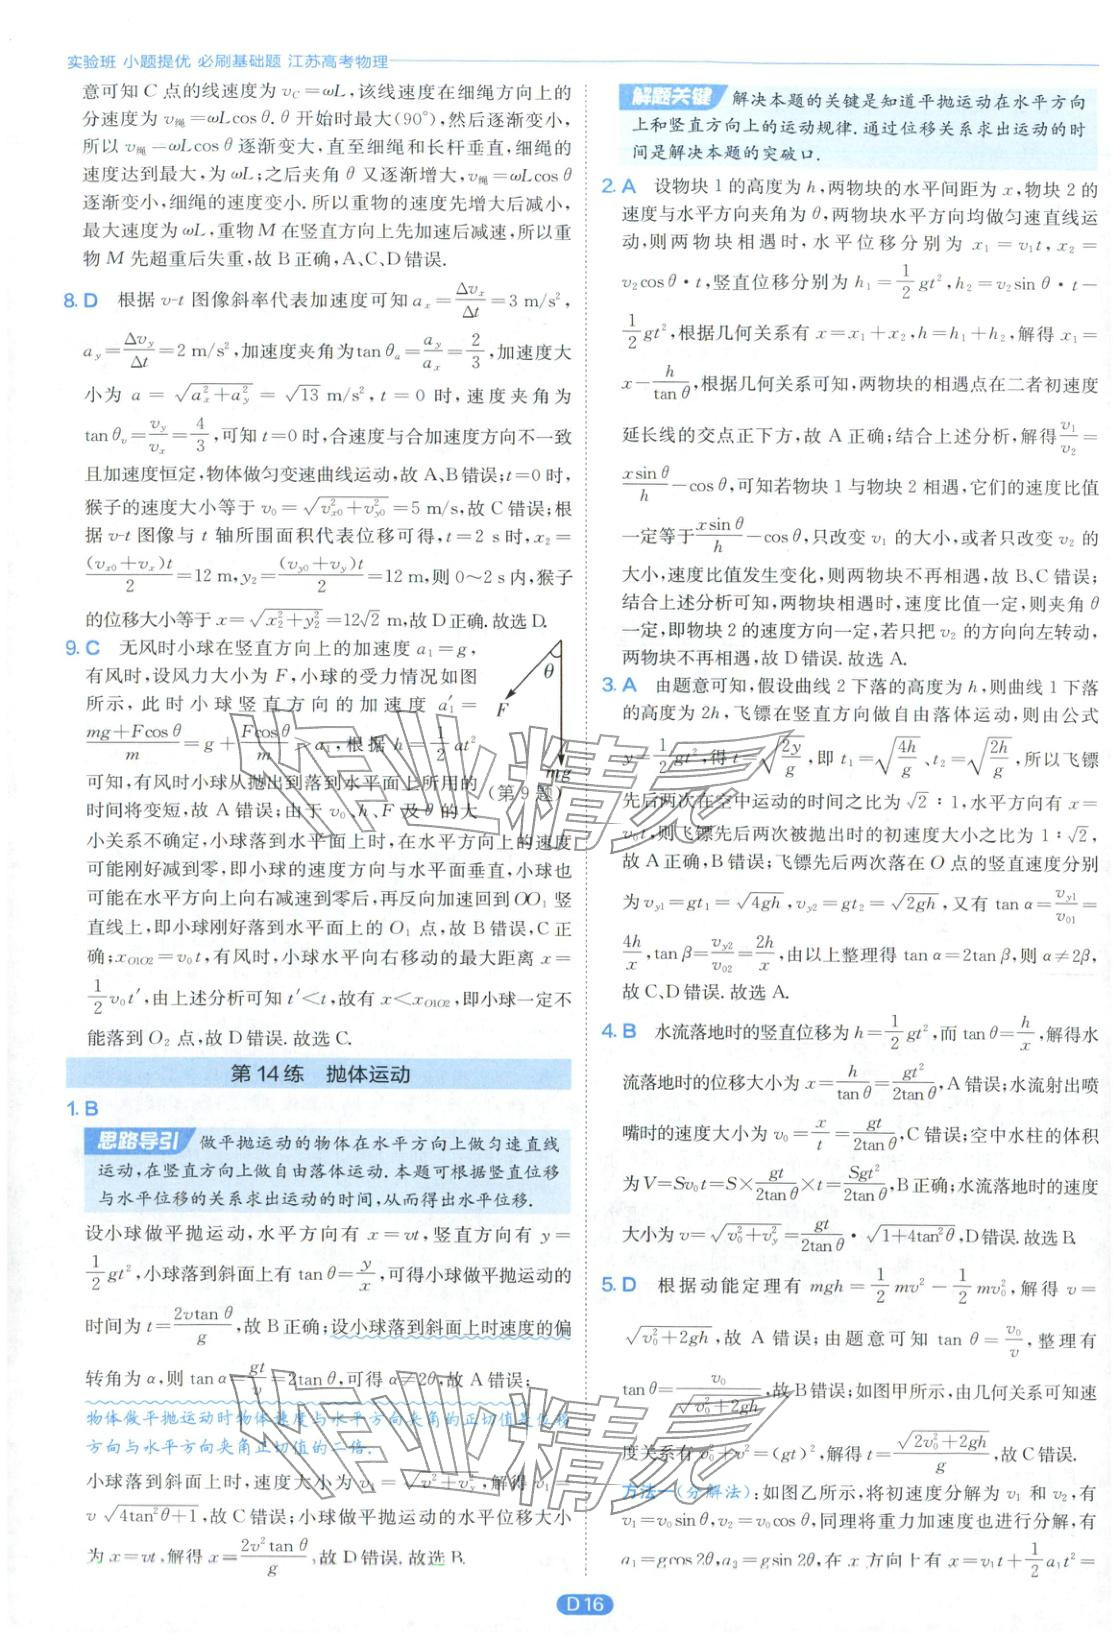 实验班 小题提优 必刷基础题 江苏高考物理
意可知 C 点的线速度为 v_C=ωL,该线速度在细绳方向上的
分速度为 v_绳=ωLcos θ. θ 开始时最大(90°),然后逐渐变小,
所以 v_绳=ωLcos θ 逐渐变大,直至细绳和长杆垂直,细绳的
速度达到最大,为 ωL;之后夹角 θ 又逐渐增大,v_绳=ωLcos θ
逐渐变小,细绳的速度变小. 所以重物的速度先增大后减小,
最大速度为 ωL,重物 M 在竖直方向上先加速后减速,所以重
物 M 先超重后失重,故 B 正确,A、C、D 错误.
8. D 根据 v-t 图像斜率代表加速度可知 a_x=Δv_x/Δt=3 m/s²,
a_y=Δv_y/Δt=2 m/s²,加速度夹角为 tan θ_a=a_y/a_x=2/3,加速度大
小为 a=√(a_x²+a_y²)=√13 m/s²,t=0 时,速度夹角为
tan θ_v=v_y/v_x=4/3,可知 t=0 时,合速度与合加速度方向不一致
且加速度恒定,物体做匀变速曲线运动,故 A、B 错误;t=0 时,
猴子的速度大小等于 v₀=√(v_x0²+v_y0²)=5 m/s,故 C 错误;根
据 v-t 图像与 t 轴所围面积代表位移可得,t=2 s 时,x₂=
(v_x0+v_x)t/2=12 m,y₂=(v_y0+v_y)t/2=12 m,则 0~2 s 内,猴子
的位移大小等于 x=√(x₂²+y₂²)=12√2 m,故 D 正确. 故选 D.
9. C 无风时小球在竖直方向上的加速度 a₁=g,
有风时,设风力大小为 F,小球的受力情况如图
所示,此时小球竖直方向的加速度 a₁′=
(mg+Fcos θ)/m=g+Fcos θ/m>a₁,根据 h=1/2 at²
可知,有风时小球从抛出到落到水平面上所用的
时间将变短,故 A 错误;由于 v₀、h、F 及 θ 的大
小关系不确定,小球落到水平面上时,在水平方向上的速度
可能刚好减到零,即小球的速度方向与水平面垂直,小球也
可能在水平方向上向右减速到零后,再反向加速回到 OO₁ 竖
直线上,即小球刚好落到水平面上的 O₁ 点,故 B 错误,C 正
确;x_O1O2=v₀t,有风时,小球水平向右移动的最大距离 x=
1/2 v₀t′,由上述分析可知 t′<t,故有 x<x_O1O2,即小球一定不
能落到 O₂ 点,故 D 错误. 故选 C.
θ
F
mg
(第 9 题)
第 14 练 抛体运动
1. B
思路导引 做平抛运动的物体在水平方向上做匀速直线
运动,在竖直方向上做自由落体运动. 本题可根据竖直位移
与水平位移的关系求出运动的时间,从而得出水平位移.
设小球做平抛运动,水平方向有 x=vt,竖直方向有 y=
1/2 gt²,小球落到斜面上有 tan θ=y/x,可得小球做平抛运动的
时间为 t=2vtan θ/g,故 B 正确;设小球落到斜面上时速度的偏
转角为 α,则 tan α=gt/v=2tan θ,可得 α≠2θ,故 A 错误;
物体做平抛运动时物体速度与水平方向夹角的正切值是位移
方向与水平方向夹角正切值的二倍.
小球落到斜面上时,速度大小为 v₁=√(v²+v_y²),解得 v₁=
v√(4tan²θ+1),故 C 错误;小球做平抛运动的水平位移大小
为 x=vt,解得 x=2v²tan θ/g,故 D 错误. 故选 B.
解题关键 解决本题的关键是知道平抛运动在水平方向
上和竖直方向上的运动规律. 通过位移关系求出运动的时
间是解决本题的突破口.
2. A 设物块 1 的高度为 h,两物块的水平间距为 x,物块 2 的
速度与水平方向夹角为 θ,两物块水平方向均做匀速直线运
动,则两物块相遇时,水平位移分别为 x₁=v₁t,x₂=
v₂cos θ·t,竖直位移分别为 h₁=1/2 gt²,h₂=v₂sin θ·t-
1/2 gt²,根据几何关系有 x=x₁+x₂,h=h₁+h₂,解得 x₁=
x-h/tan θ,根据几何关系可知,两物块的相遇点在二者初速度
延长线的交点正下方,故 A 正确;结合上述分析,解得 v₁/v₂=
xsin θ/h-cos θ,可知若物块 1 与物块 2 相遇,它们的速度比值
一定等于 xsin θ/h-cos θ,只改变 v₁ 的大小,或者只改变 v₂ 的
大小,速度比值发生变化,则两物块不再相遇,故 B、C 错误;
结合上述分析可知,两物块相遇时,速度比值一定,则夹角 θ
一定,即物块 2 的速度方向一定,若只把 v₂ 的方向向左转动,
两物块不再相遇,故 D 错误. 故选 A.
3. A 由题意可知,假设曲线 2 下落的高度为 h,则曲线 1 下落
的高度为 2h,飞镖在竖直方向做自由落体运动,则由公式
y=1/2 gt²,得 t=√(2y/g),即 t₁=√(4h/g)、t₂=√(2h/g),所以飞镖
先后两次在空中运动的时间之比为 √2∶1,水平方向有 x=
v₀t,则飞镖先后两次被抛出时的初速度大小之比为 1∶√2,
故 A 正确,B 错误;飞镖先后两次落在 O 点的竖直速度分别
为 v_y1=gt₁=√(4gh),v_y2=gt₂=√(2gh),又有 tan α=v_y1/v_01=
4h/x,tan β=v_y2/v_02=2h/x,由以上整理得 tan α=2tan β,则 α≠2β,
故 C、D 错误. 故选 A.
4. B 水流落地时的竖直位移为 h=1/2 gt²,而 tan θ=h/x,解得水
流落地时的位移大小为 x=h/tan θ=gt²/2tan θ,A 错误;水流射出喷
嘴时的速度大小为 v₀=x/t=gt/2tan θ,C 错误;空中水柱的体积
为 V=Sv₀t=S×gt/2tan θ×t=Sgt²/2tan θ,B 正确;水流落地时的速度
大小为 v=√(v₀²+v_y²)=gt/2tan θ·√(1+4tan²θ),D 错误. 故选 B.
5. D 根据动能定理有 mgh=1/2 mv²-1/2 mv₀²,解得 v=
√(v₀²+2gh),故 A 错误;由题意可知 tan θ=v₀/v,整理有
tan θ=v₀/√(v₀²+2gh),故 B 错误;如图甲所示,由几何关系可知速
度关系有 v₀²+v²=(gt)²,解得 t=√(2v₀²+2gh)/g,故 C 错误.
方法一(分解法):如图乙所示,将初速度分解为 v₁ 和 v₂,有
v₁=v₀sin θ,v₂=v₀cos θ,同理将重力加速度也进行分解,有
a₁=gcos 2θ,a₂=gsin 2θ,在 x 方向上有 x=v₁t+1/2 a₁t²=
D 16
作业精灵
作业精灵